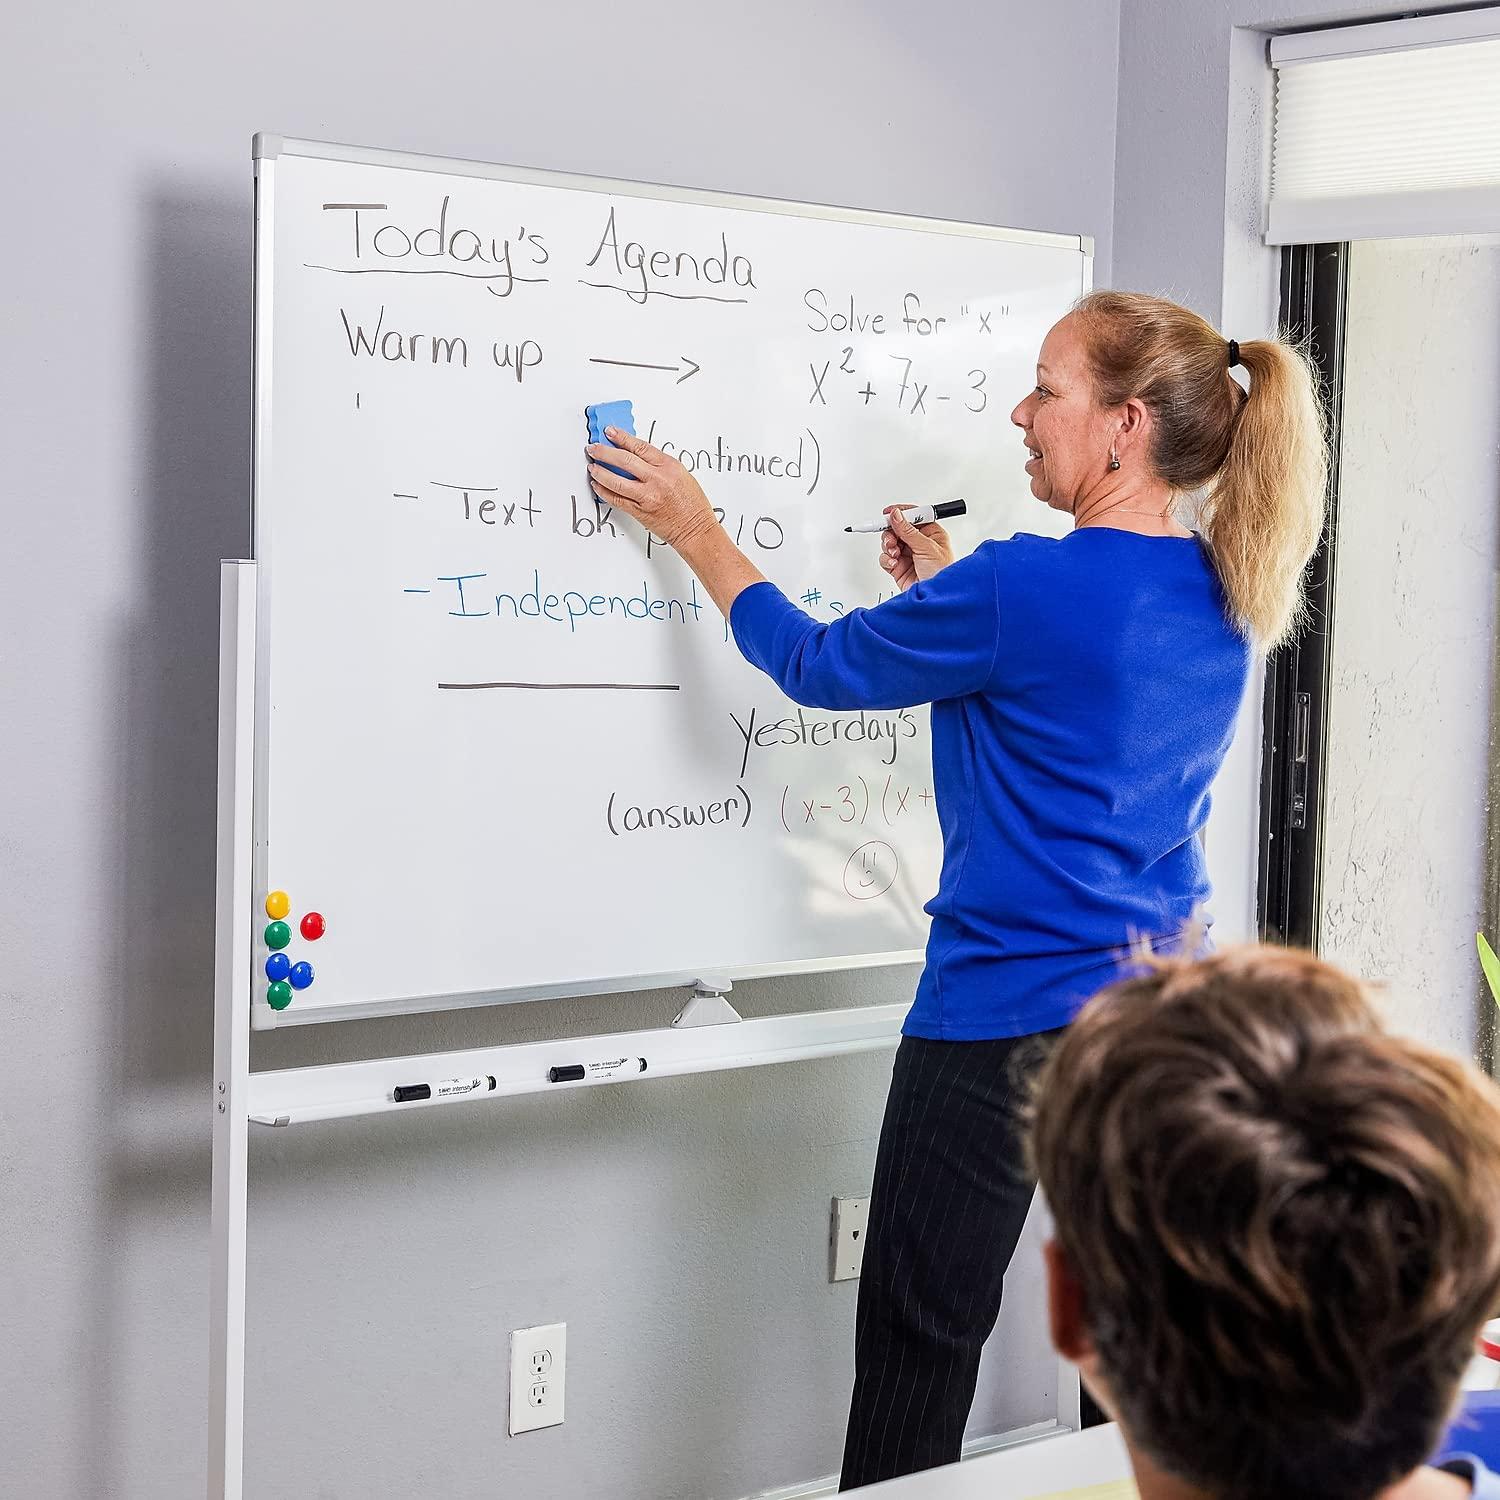 Today's Agenda
Warm up → Solve for "x"
x² + 7x - 3
(continued)
- Text bk. 210
- Independent #s
Yesterday's
(answer) (x-3)(x+